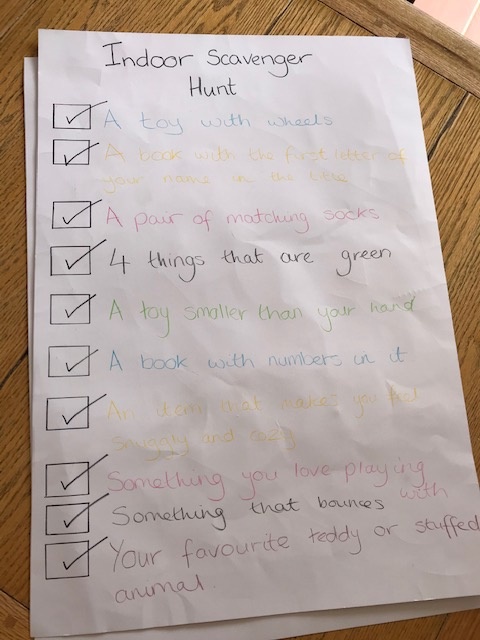 Indoor Scavenger
Hunt
A toy with wheels
A book with the first letter of
your name in the title
A pair of matching socks
4 things that are green
A toy smaller than your hand
A book with numbers in it
An item that makes you feel
snuggly and cozy
Something you love playing
with
Something that bounces
Your favourite teddy or stuffed
animal